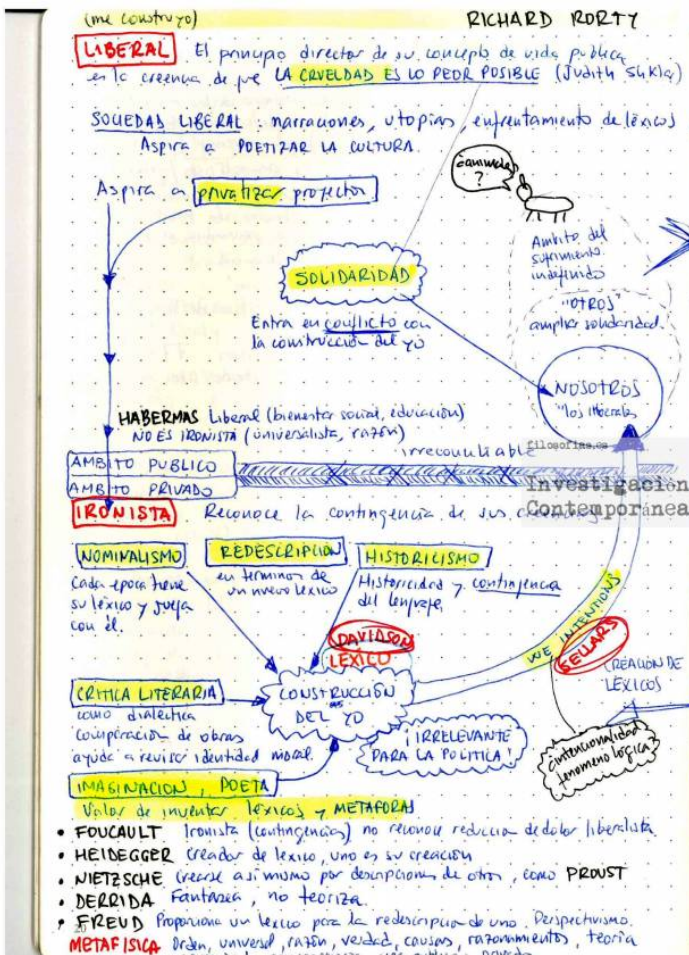 (me construyo)
RICHARD RORTY
LIBERAL El principio director de su concepto de vida publica
es la creencia de que LA CRUELDAD ES LO PEOR POSIBLE (Judith Shklar)
SOCIEDAD LIBERAL: narraciones, utopias, enfrentamiento de léxicos
Aspira a POETIZAR LA CULTURA.
Aspira a privatizar proyectos
¿animales
?
Ambito del
sufrimiento
indefinido
SOLIDARIDAD
"OTROS"
ampliar solidaridad.
Entra en conflicto con
la construcción del yo
NOSOTROS
"los liberales
HABERMAS Liberal (bienestar social, educación)
NO ES IRONISTA (universalista, razón)
filosofias.es
irreconciliable
AMBITO PUBLICO
AMBITO PRIVADO
Investigación
Contemporánea
IRONISTA Reconoce la contingencia de sus creencias
NOMINALISMO
Cada epoca tiene
su léxico y juega
con él.
REDESCRIPCION
en terminos de
un nuevo lexico
HISTORICISMO
Historicidad y contingencia
del lenguaje
DAVIDSON
LEXICO
WE INTENTIONS
SELLARS
CREACION DE
LEXICOS
CRITICA LITERARIA
como dialéctica
comparación de obras
ayuda a revisar identidad moral.
CONSTRUCCIÓN
DEL YO
¡IRRELEVANTE
PARA LA POLITICA!
¿intencionalidad
fenomenológica?
IMAGINACION, POETA
Valor de inventar lexicos y METAFORAS
• FOUCAULT Ironista (contingencias) no reconoce reduccion de dolor liberalista
• HEIDEGGER Creador de lexico, uno es su creación
• NIETZSCHE Crearse a si mismo por descripciones de otros, como PROUST
• DERRIDA Fantasea, no teoriza.
• FREUD Proporciona un lexico para la redescripcion de uno. Perspectivismo.
METAFISICA Orden, universal, razón, verdad, causas, razonamientos, teoría